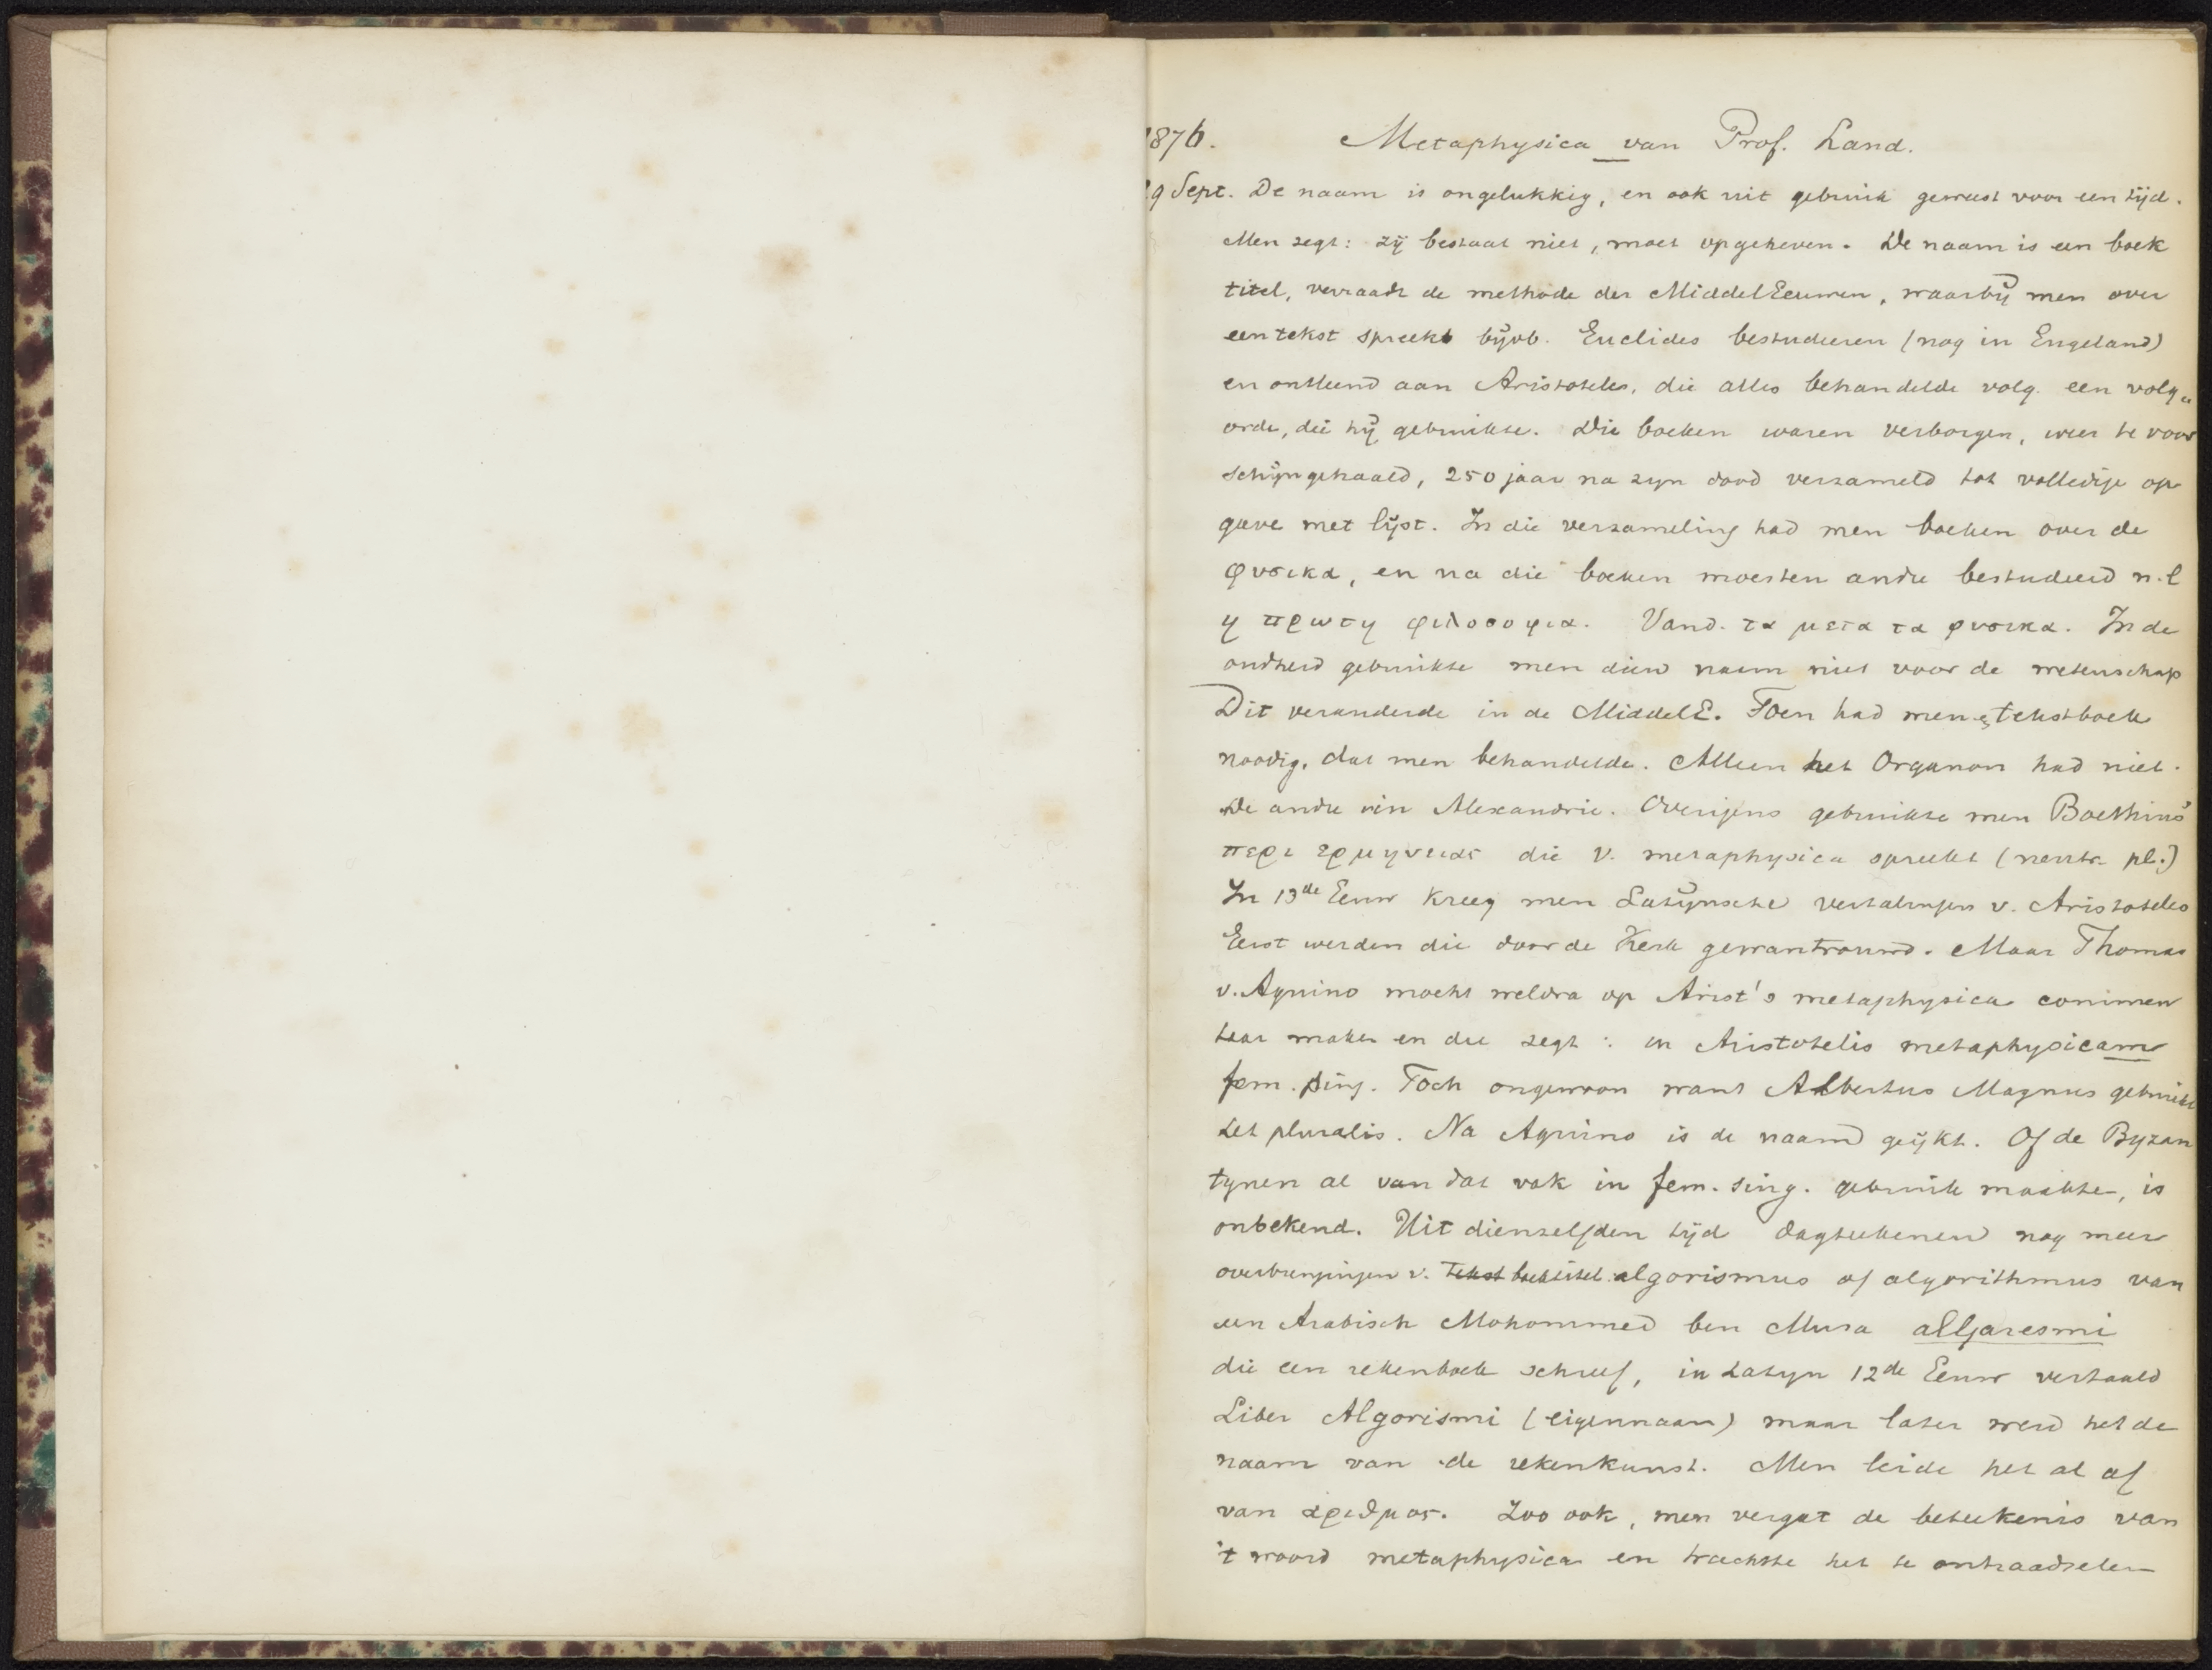 1876. Metaphysica van Prof. Land.
29 Sept. De naam is ongelukkig, en ook uit gebruik geweest voor een tijd.
Men zegt: zij bestaat niet, moet opgeheven. De naam is een boek
titel, verraadt de methode der MiddelEeuwen, waarbij men over
een tekst spreekt bijvb. Euclides bestudeeren (nog in Engeland)
en ontleend aan Aristoteles, die alles behandelde volg. een volg„
orde, die hij gebruikte. Die boeken waren verborgen, weer te voor
schijn gehaald, 250 jaar na zyn dood verzameld tot volledige op
gave met lijst. In die verzameling had men boeken over de
φυσικα, en na die boeken moesten andre bestudeerd n.l
η πρωτη φιλοσοφια. Vand. τα μετα τα φυσικα. In de
oudheid gebruikte men dien naam niet voor de wetenschap
Dit veranderde in de MiddelE. Toen had men e tekstboek
noodig, dat men behandelde. Alleen het Organon had niet.
De andre in Alexandrie. Overigens gebruikte men Boethius'
περι ερμηνειας die v. metaphysica spreekt (neutr. pl.)
In 13de Eeuw kreeg men Latijnsche vertalingen v. Aristoteles
Eerst werden die door de Kerk gewantrouwd. Maar Thomas
v. Aquino mocht weldra op Arist's metaphysica commen
taar maken en die zegt: in Aristotelis metaphysicam
fem. sing. Toch ongewoon want Albertus Magnus gebruikt
het pluralis. Na Aquino is de naam geijkt. Of de Byzan
tynen al van dat vak in fem. sing. gebruik maakte, is
onbekend. Uit dienzelfden tijd dagteekenen nog meer
overbrengingen v. Tekst boektitel algorismus of algorithmus van
een Arabisch Mohommed ben Musa alljaresmi
die een rekenboek schreef, in Latyn 12de Eeuw vertaald
Liber Algorismi (eigennaam) maar later werd het de
naam van de rekenkunst. Men leide het al af
van αριθμος. Zoo ook, men vergat de beteekenis van
't woord metaphysica en trachtte het te ontraadselen